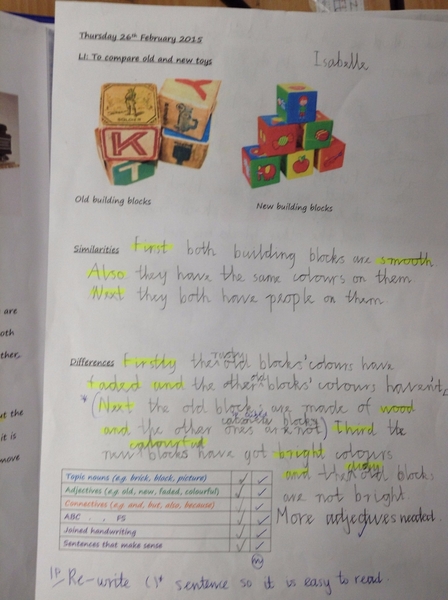 Thursday 26th February 2015
LI: To compare old and new toys
Isabelle
K
T
Old building blocks
New building blocks
Similarities First both building blocks are smooth
Also they have the same colours on them
Next they both have people on them
rusty
Differences Firstly the old blocks' colours have
old
faded and the other blocks' colours haven't.
* (Next the old block are made of wood
and the other ones are not) Third the
colourful
new blocks have got bright colours
and the old blocks
are not bright.
Topic nouns (e.g. brick, block, picture)
Adjectives (e.g. old, new, faded, colourful)
Connectives (e.g. and, but, also, because)
ABC . , FS
Joined handwriting
Sentences that make sense
More adjectives needed.
IP Re-write ()* sentence so it is easy to read.
are
oth
ther,
ut the
it is
move